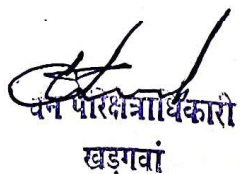 वन परिक्षेत्राधिकारी
खड़गवां